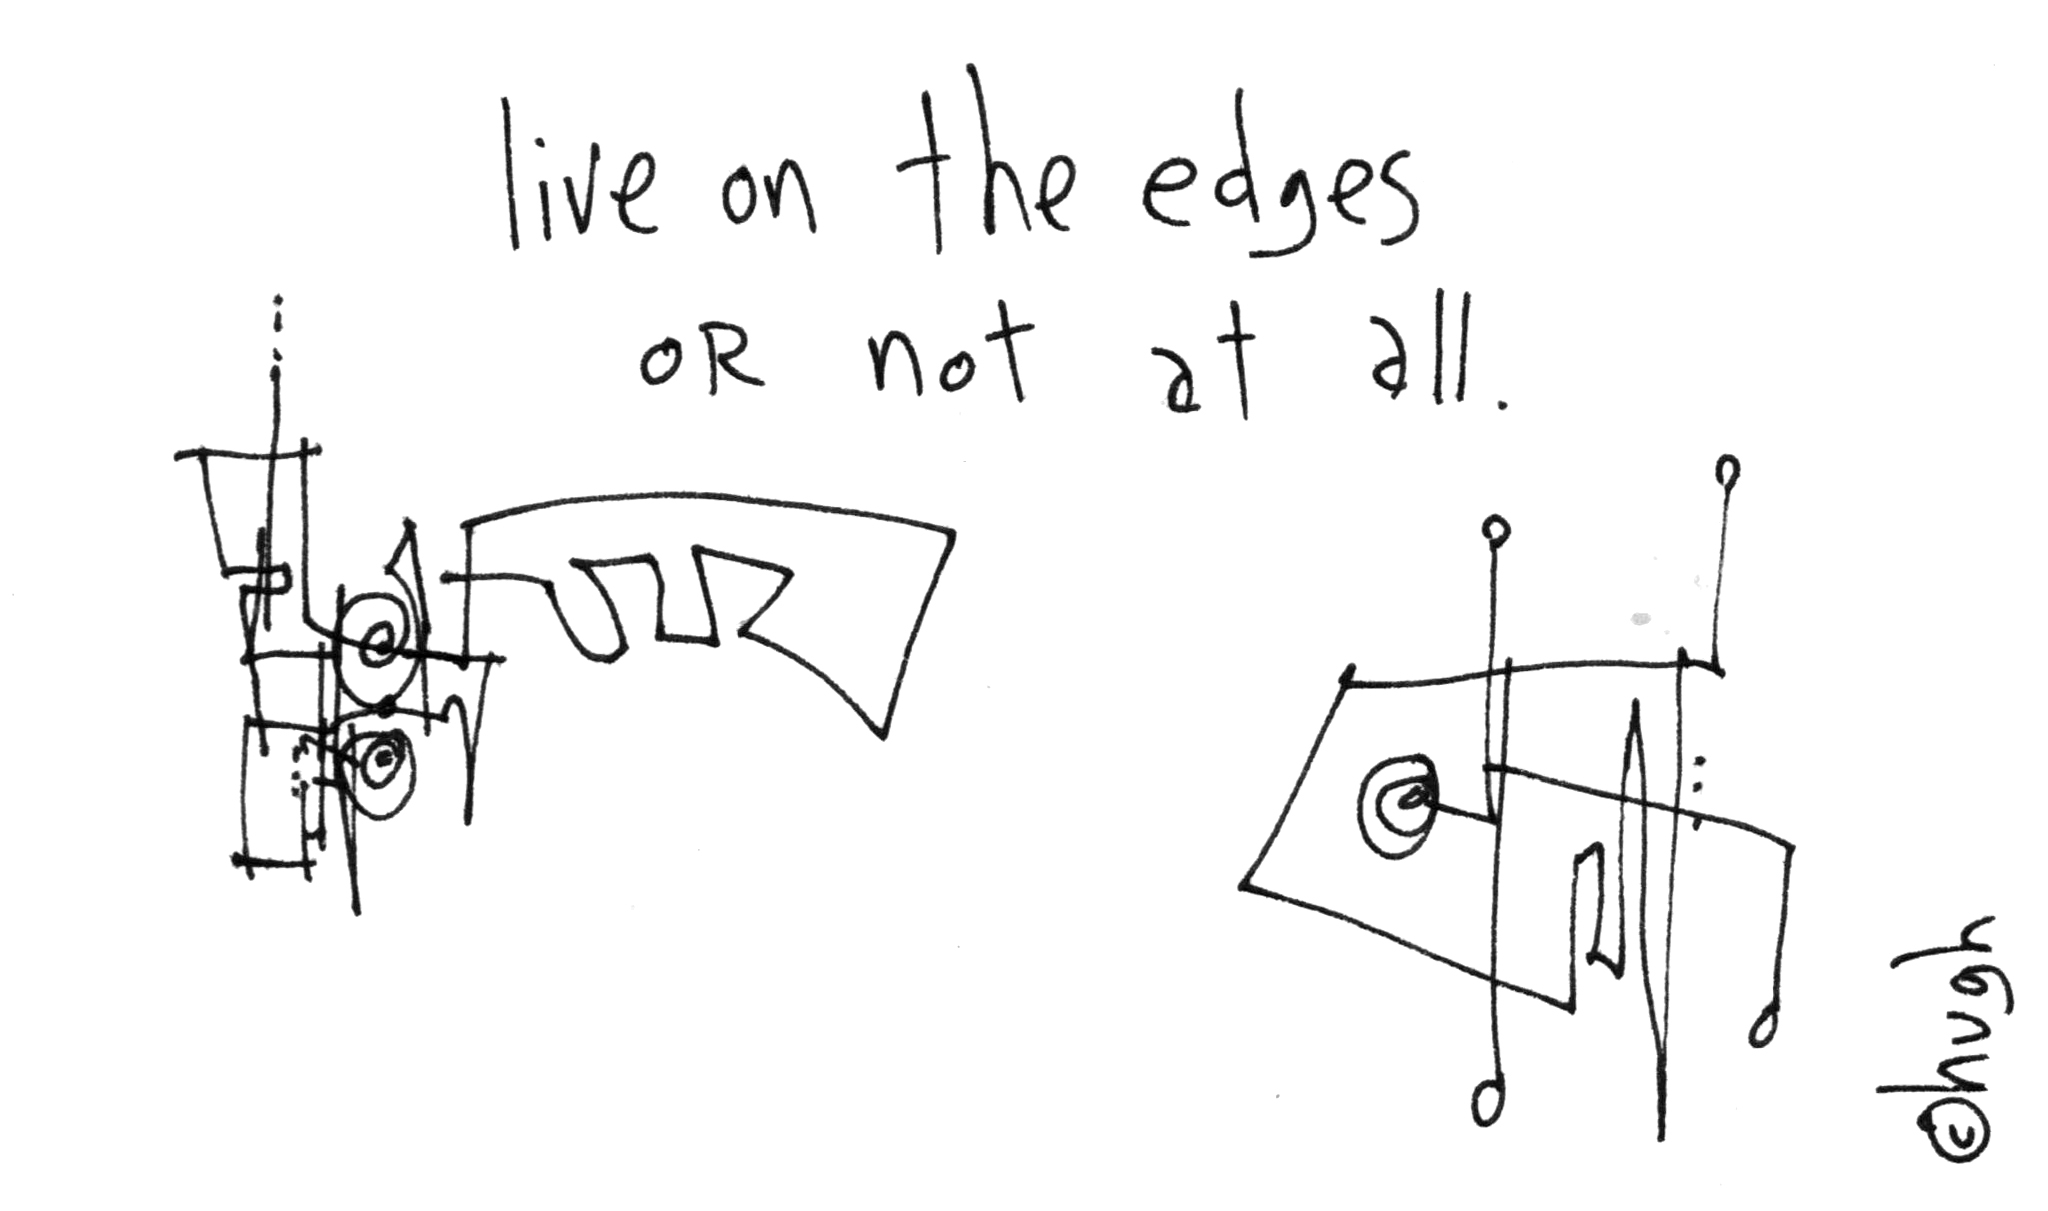 live on the edges
OR not at all.
©hugh